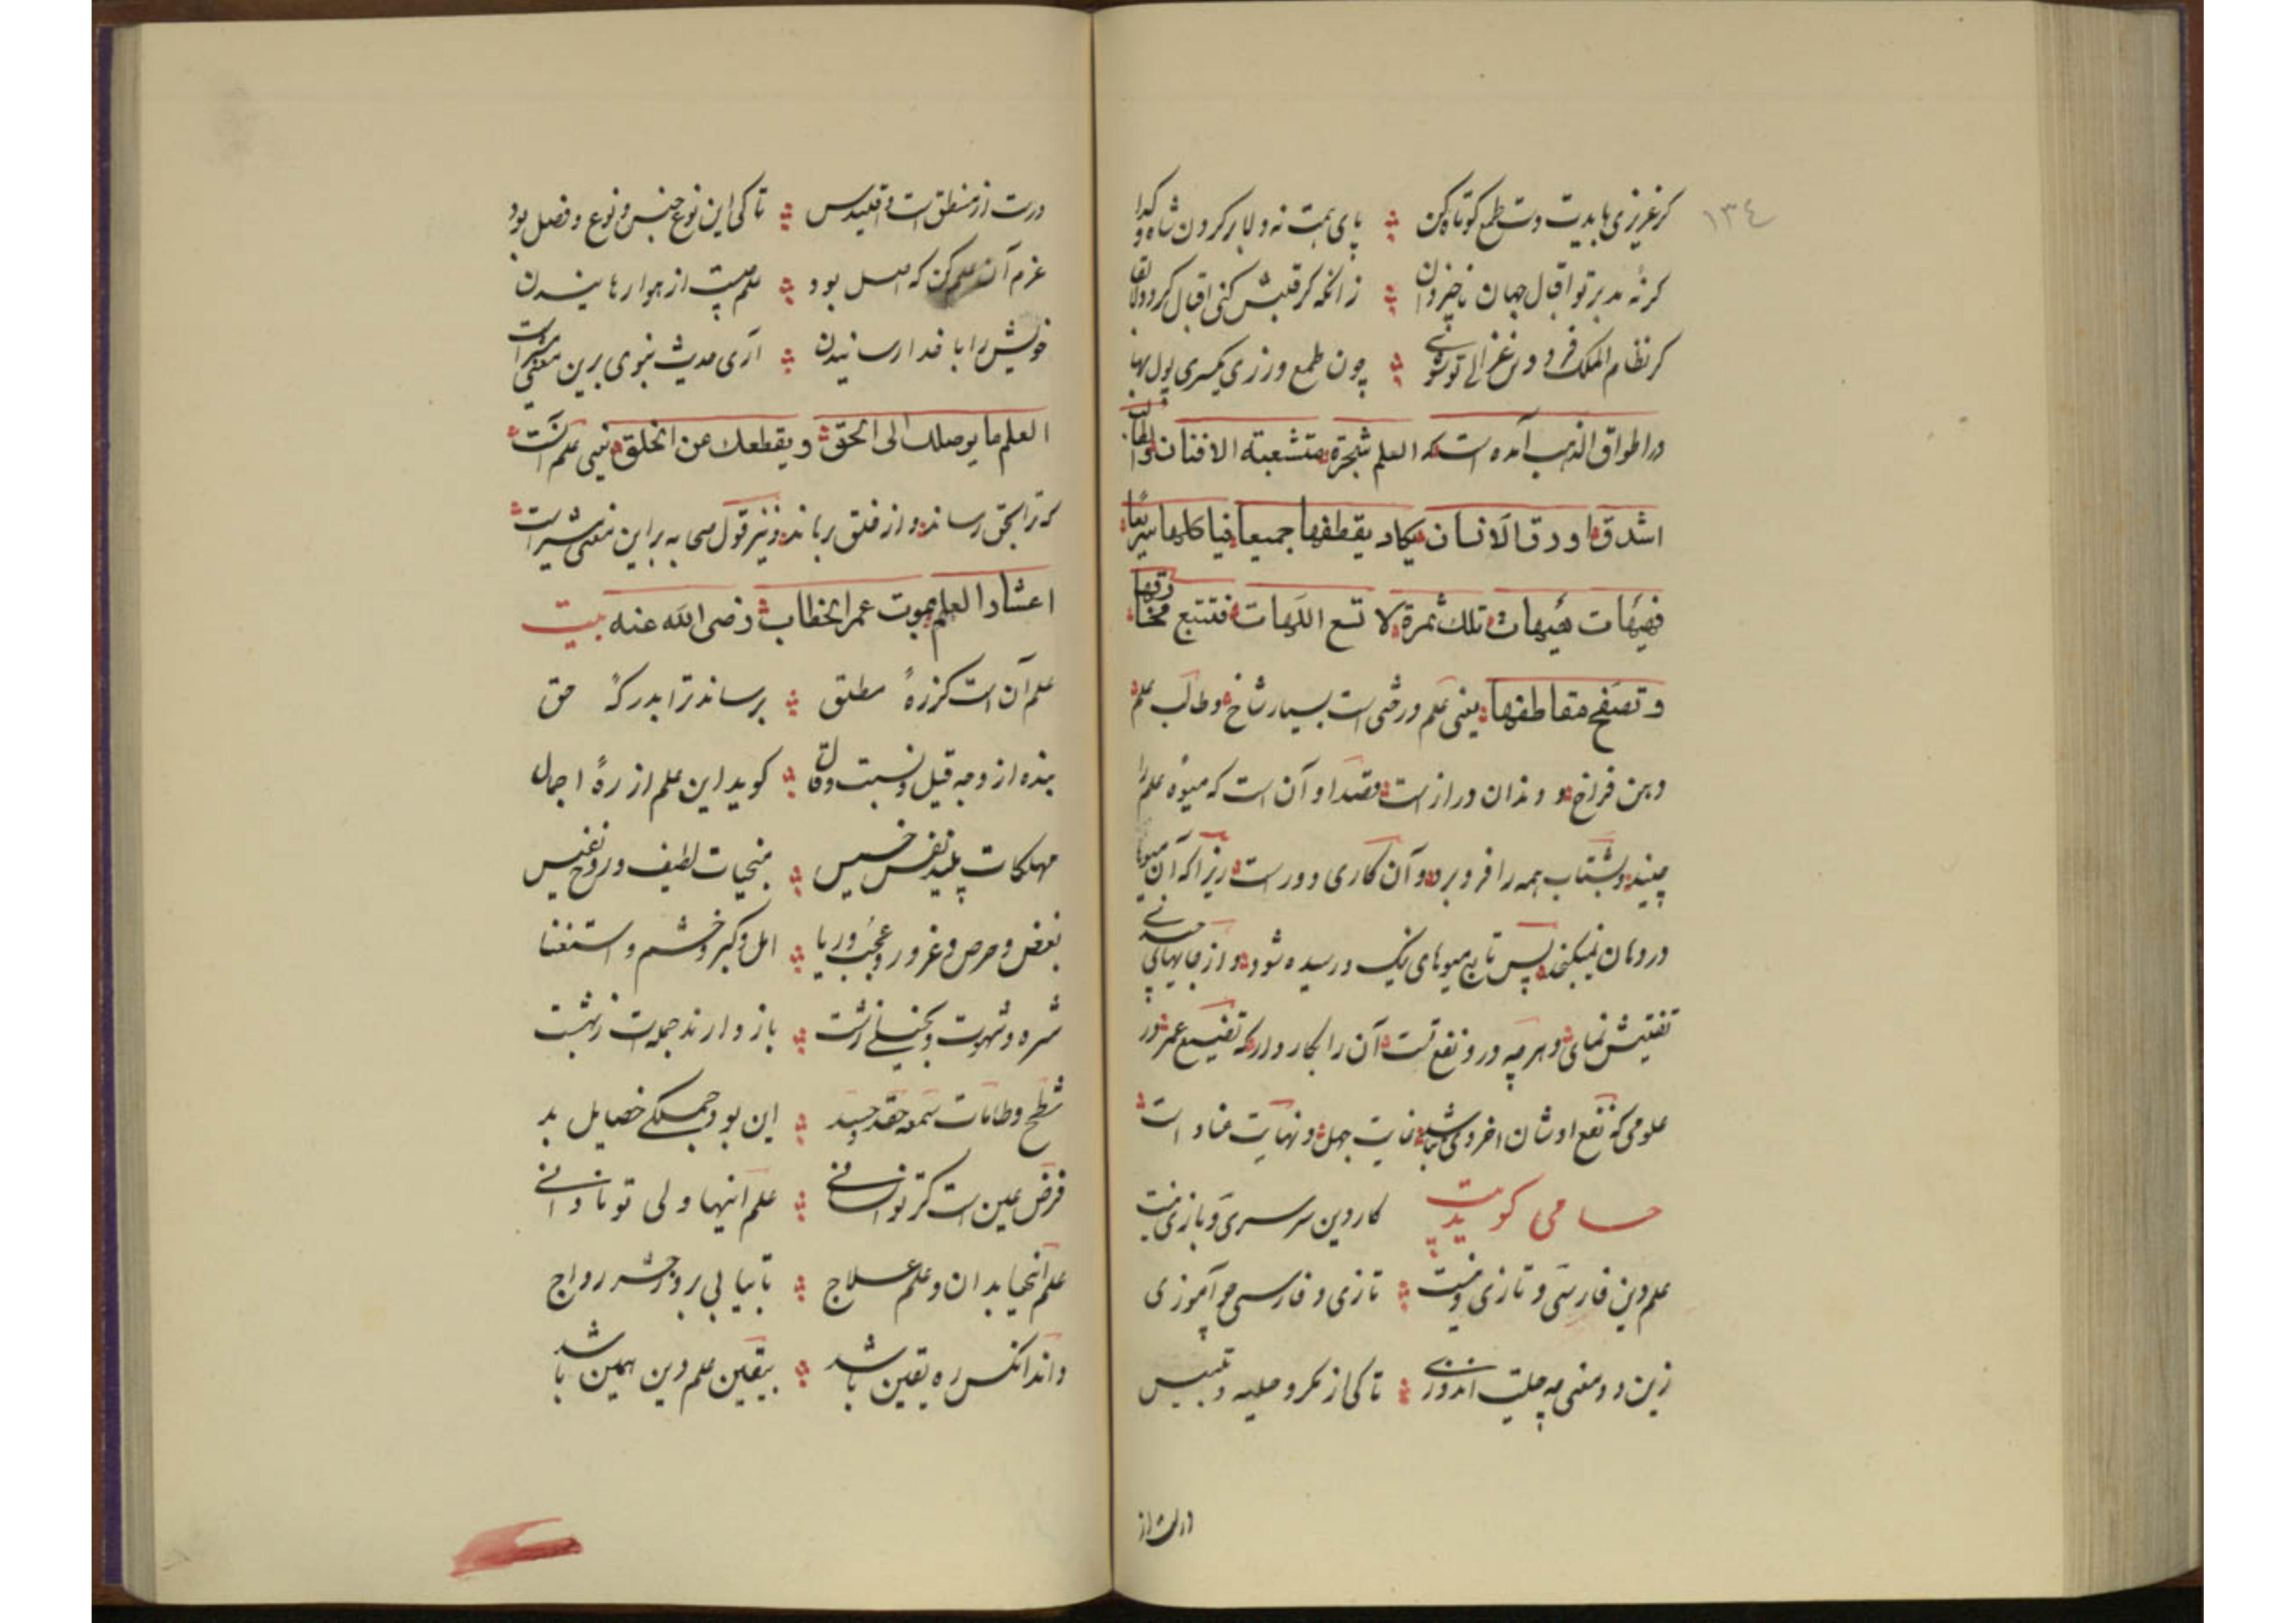 ١٣٤
گر عزیزی بایدت دست طمع کوتاه کن ؞ پای همت نه ولا بر گردن شاه و گدا
گر نهٔ مدبر تو اقبال جهان ناخیز دان ؞ زانکه گر قلبش کنی اقبال گردد لابقا
گر نظام الملک فردوس غزالی تو شوی ؞ چون طمع ورزی بگیری پول بها
در اطواق الذهب آمده است که العلم شجرة متشعبة الافنان والطالب
اشدق اورق الانسان یکاد یقطفها جمیعا فیاکلها سریعا
فهیهات هیهات تلک ثمرة لا تسع اللهات فتتبع مخارقها
و تصفح مقاطفها یعنی علم درختی است بسیار شاخ و طالب علم
دهن فراخ و دندان دراز است مقصد او آن است که میوهٔ علم را
چیند و بشتاب همه را فرو برد و آن کاری دور است زیرا که آن میوها
در دهان نمیکنجد پس تابع میوهای نیک و رسیده شود و از جایهای
تفتیش نمای و هر چه درو نفع تست آن را بکار دار که تضییع عمر در
علومی که نفع اوشان اخروی نباشد غایت جهل و نهایت عناد است
حسامی کوید بیت کار دین سرسری و بازی نیست
علم دین فارسی و تازی نیست ؞ تازی و فارسی چو آموزی
زین دو معنی چه حیلت اندوزی ؞ تا کی از مکر و حیله و تلبیس
درست از
درست از منطق است و اقلیدس ؞ تا کی این نوع جنس و نوع و فصل بود
عزم آن علم کن که اصل بود ؞ علم چیست از هوا رهانیدن
خویش را با خدا رسانیدن ؞ آری حدیث نبوی برین معنی مشیر است
العلم ما یوصلک الی الحق و یقطعک عن الخلق یعنی علم آنست
که ترا بحق رساند و از خلق رهاند و نیز قول صحابه بر این معنی مشیر است
اعشار العلم بموت عمر الخطاب رضی الله عنه بیت
علم آن است کز ره مطلق ؞ برساند ترا بدرکه حق
بنده از وجه قیل و نسبت و قال ؞ کوید این علم از ره اجمال
مهلکات پلید نفس خسیس ؞ منجیات لطیف و روح نفیس
بغض و حرص و غرور و عجب و ریا ؞ امل و کبر و خشم و استغنا
شره و شهوت و بخیلی زشت ؞ باز دارند جمله‌ات ز بهشت
شطح و طامات سمعه حقد و حسد ؞ این بود جملکی خصایل بد
فرض عین است کر توانستی ؞ علم اینها ولی تو نادانی
علم آنها بدان و علم علاج ؞ تا بیابی بروز حشر رواج
داند انکس ره یقین باشد ؞ بیقین علم دین همین باشد